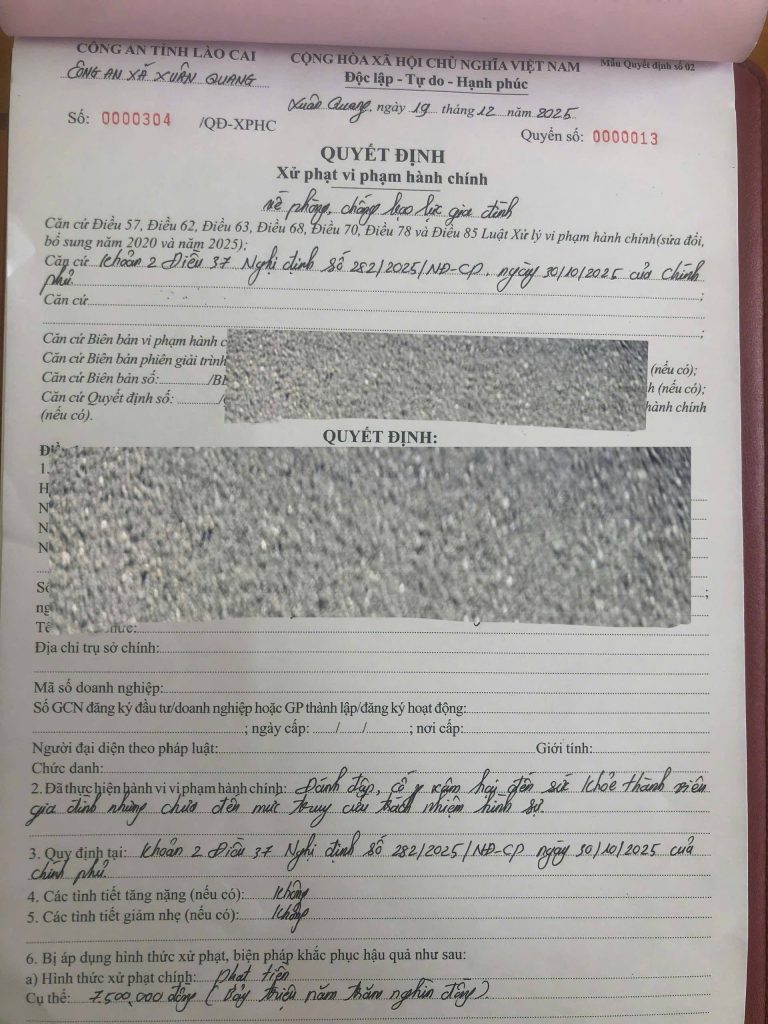 CÔNG AN TỈNH LÀO CAI
CÔNG AN XÃ XUÂN QUANG
CỘNG HÒA XÃ HỘI CHỦ NGHĨA VIỆT NAM
Độc lập - Tự do - Hạnh phúc
Mẫu Quyết định số 02
Số: 0000304 /QĐ-XPHC
Xuân Quang, ngày 19 tháng 12 năm 2025
Quyển số: 0000013
QUYẾT ĐỊNH
Xử phạt vi phạm hành chính
về phòng, chống bạo lực gia đình
Căn cứ Điều 57, Điều 62, Điều 63, Điều 68, Điều 70, Điều 78 và Điều 85 Luật Xử lý vi phạm hành chính(sửa đổi,
bổ sung năm 2020 và năm 2025);
Căn cứ Khoản 2 Điều 37 Nghị định số 282/2025/NĐ-CP, ngày 30/10/2025 của Chính
phủ. ;
Căn cứ
;
Căn cứ Biên bản vi phạm hành c
Căn cứ Biên bản phiên giải trình (nếu có);
Căn cứ Biên bản số: /BI h (nếu có);
Căn cứ Quyết định số: / hành chính
(nếu có).
QUYẾT ĐỊNH:
1.
H
N
N
N
Số ;
ng
Tê chức:
Địa chỉ trụ sở chính:
Mã số doanh nghiệp:
Số GCN đăng ký đầu tư/doanh nghiệp hoặc GP thành lập/đăng ký hoạt động:
; ngày cấp: / / ; nơi cấp:
Người đại diện theo pháp luật: Giới tính:
Chức danh:
2. Đã thực hiện hành vi vi phạm hành chính: Đánh đập, cố ý xâm hại đến sức khỏe thành viên
gia đình nhưng chưa đến mức truy cứu trách nhiệm hình sự.
3. Quy định tại: Khoản 2 Điều 37 Nghị định số 282/2025/NĐ-CP ngày 30/10/2025 của
chính phủ.
4. Các tình tiết tăng nặng (nếu có): Không
5. Các tình tiết giảm nhẹ (nếu có): Không
6. Bị áp dụng hình thức xử phạt, biện pháp khắc phục hậu quả như sau:
a) Hình thức xử phạt chính: phạt tiền
Cụ thể: 7.500.000 đồng (Bảy triệu năm trăm nghìn đồng).